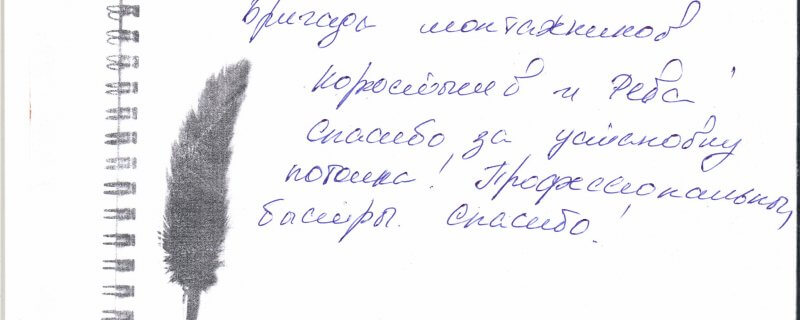 Бригада монтажников
Коростылев и Рева!
Спасибо за установку
потолка! Профессиональны,
быстры. Спасибо!